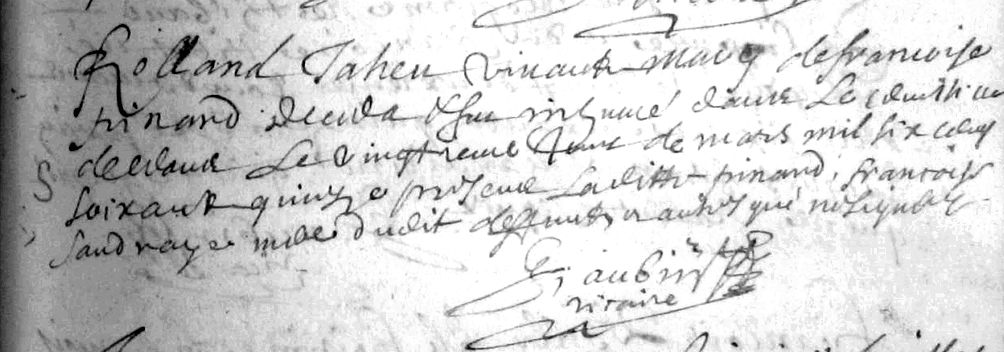 Rolland Taheu vivant mary de francoise
pinard deceda & fut inhumé dans Le cimitiere
de ceans Le vingtieme Jour de mars mil six cens
soixante quinze presens Laditte pinard, francoise
Sandraye mere dudit deffunt, et autres qui ne signent
G: aubin
vicaire